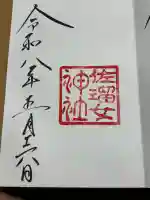 佐瑠女
神社
令和八年五月六日